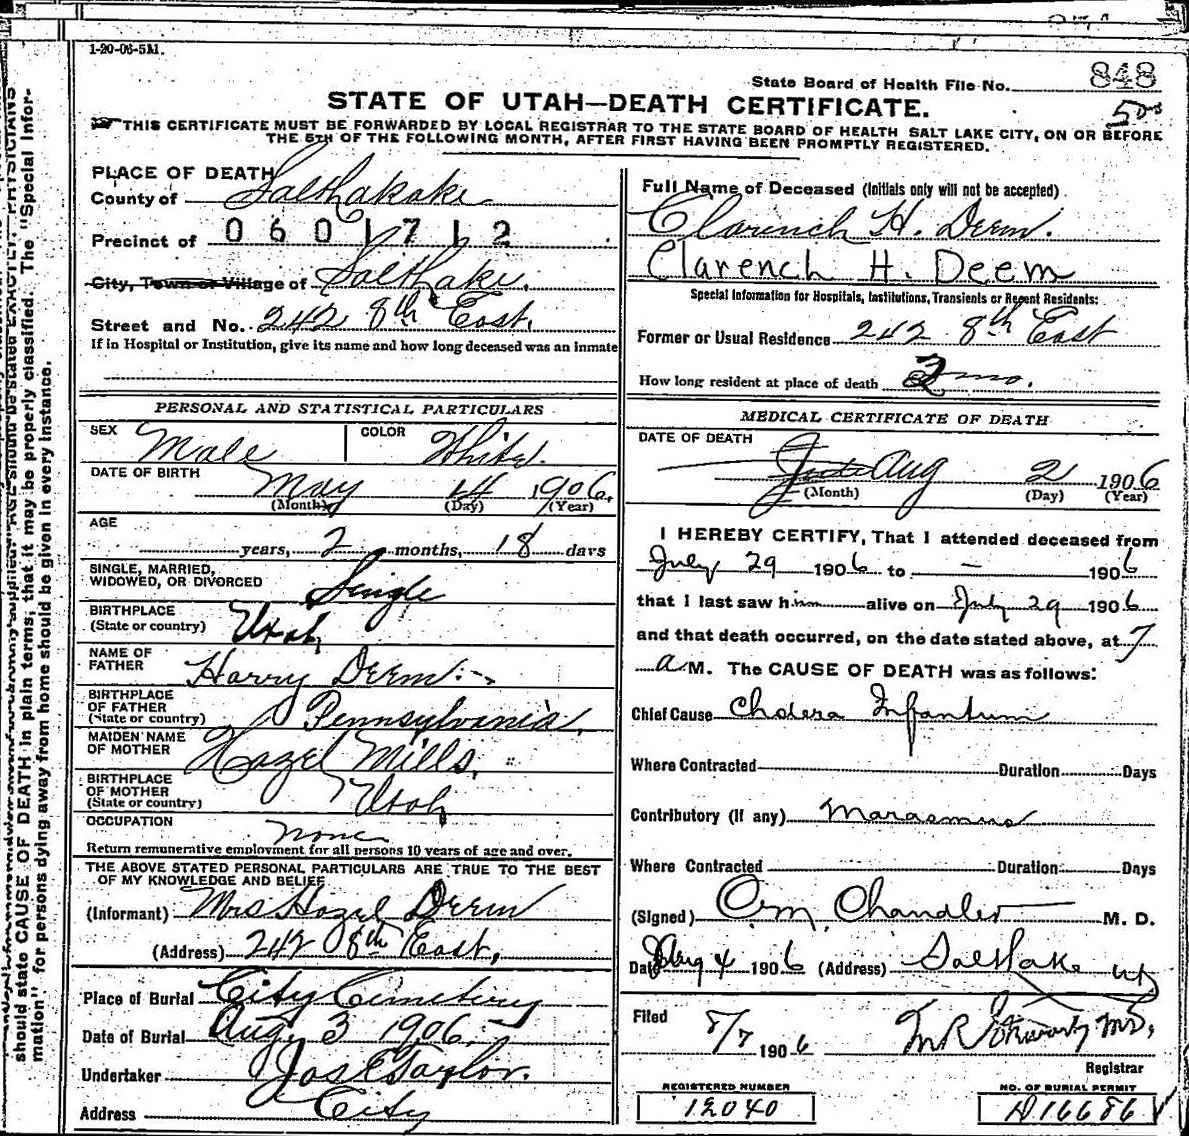 1-20-06-5M.
State Board of Health File No. 848
STATE OF UTAH—DEATH CERTIFICATE.
500
THIS CERTIFICATE MUST BE FORWARDED BY LOCAL REGISTRAR TO THE STATE BOARD OF HEALTH SALT LAKE CITY, ON OR BEFORE
THE 5TH OF THE FOLLOWING MONTH, AFTER FIRST HAVING BEEN PROMPTLY REGISTERED.
PLACE OF DEATH
County of Salt Lake
Precinct of 0601712
City, Town or Village of Salt Lake.
Street and No. 242 8th East.
If in Hospital or Institution, give its name and how long deceased was an inmate
PERSONAL AND STATISTICAL PARTICULARS
SEX Male COLOR White.
DATE OF BIRTH May 14 1906.
(Month) (Day) (Year)
AGE
years, 2 months, 18 days
SINGLE, MARRIED,
WIDOWED, OR DIVORCED Single
BIRTHPLACE
(State or country) Utah
NAME OF
FATHER Harry Deem
BIRTHPLACE
OF FATHER
(State or country) Pennsylvania,
MAIDEN NAME
OF MOTHER Hazel Mills,
BIRTHPLACE
OF MOTHER
(State or country) Utah
OCCUPATION none
Return remunerative employment for all persons 10 years of age and over.
THE ABOVE STATED PERSONAL PARTICULARS ARE TRUE TO THE BEST
OF MY KNOWLEDGE AND BELIEF
(Informant) Mrs Hazel Deem
(Address) 242 8th East,
Place of Burial City Cemetery
Date of Burial Aug. 3 1906.
Undertaker Jos E Taylor.
Address City
Full Name of Deceased (Initials only will not be accepted)
Clarench H. Deem.
Clarench H. Deem
Special Information for Hospitals, Institutions, Transients or Recent Residents:
Former or Usual Residence 242 8th East
How long resident at place of death 2 mo.
MEDICAL CERTIFICATE OF DEATH
DATE OF DEATH
Aug 2 1906
(Month) (Day) (Year)
I HEREBY CERTIFY, That I attended deceased from
July 29 1906 to — 1906
that I last saw him alive on July 29 1906
and that death occurred, on the date stated above, at 7
a M. The CAUSE OF DEATH was as follows:
Chief Cause Cholera Infantum
Where Contracted Duration Days
Contributory (If any) Marasmus
Where Contracted Duration Days
(Signed) O.M. Chandler M. D.
Date Aug 4 1906 (Address) Salt Lake Ut
Filed 8/7 1906
Registrar
REGISTERED NUMBER
12040
NO. OF BURIAL PERMIT
D16686
should state CAUSE OF DEATH in plain terms, that it may be properly classified. The "Special Infor-
mation" for persons dying away from home should be given in every instance.